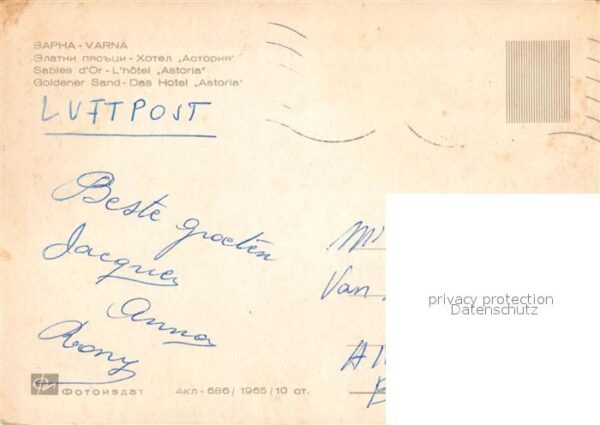 ВАРНА - VARNA
Златни пясъци - Хотел „Астория"
Sables d'Or - L'hôtel „Astoria"
Goldener Sand - Das Hotel „Astoria"
LUFTPOST
Beste groeten
Jacques
Anna
Rony
Van
privacy protection
Datenschutz
Фотоиздат Акл - 686 / 1965 / 10 ст.